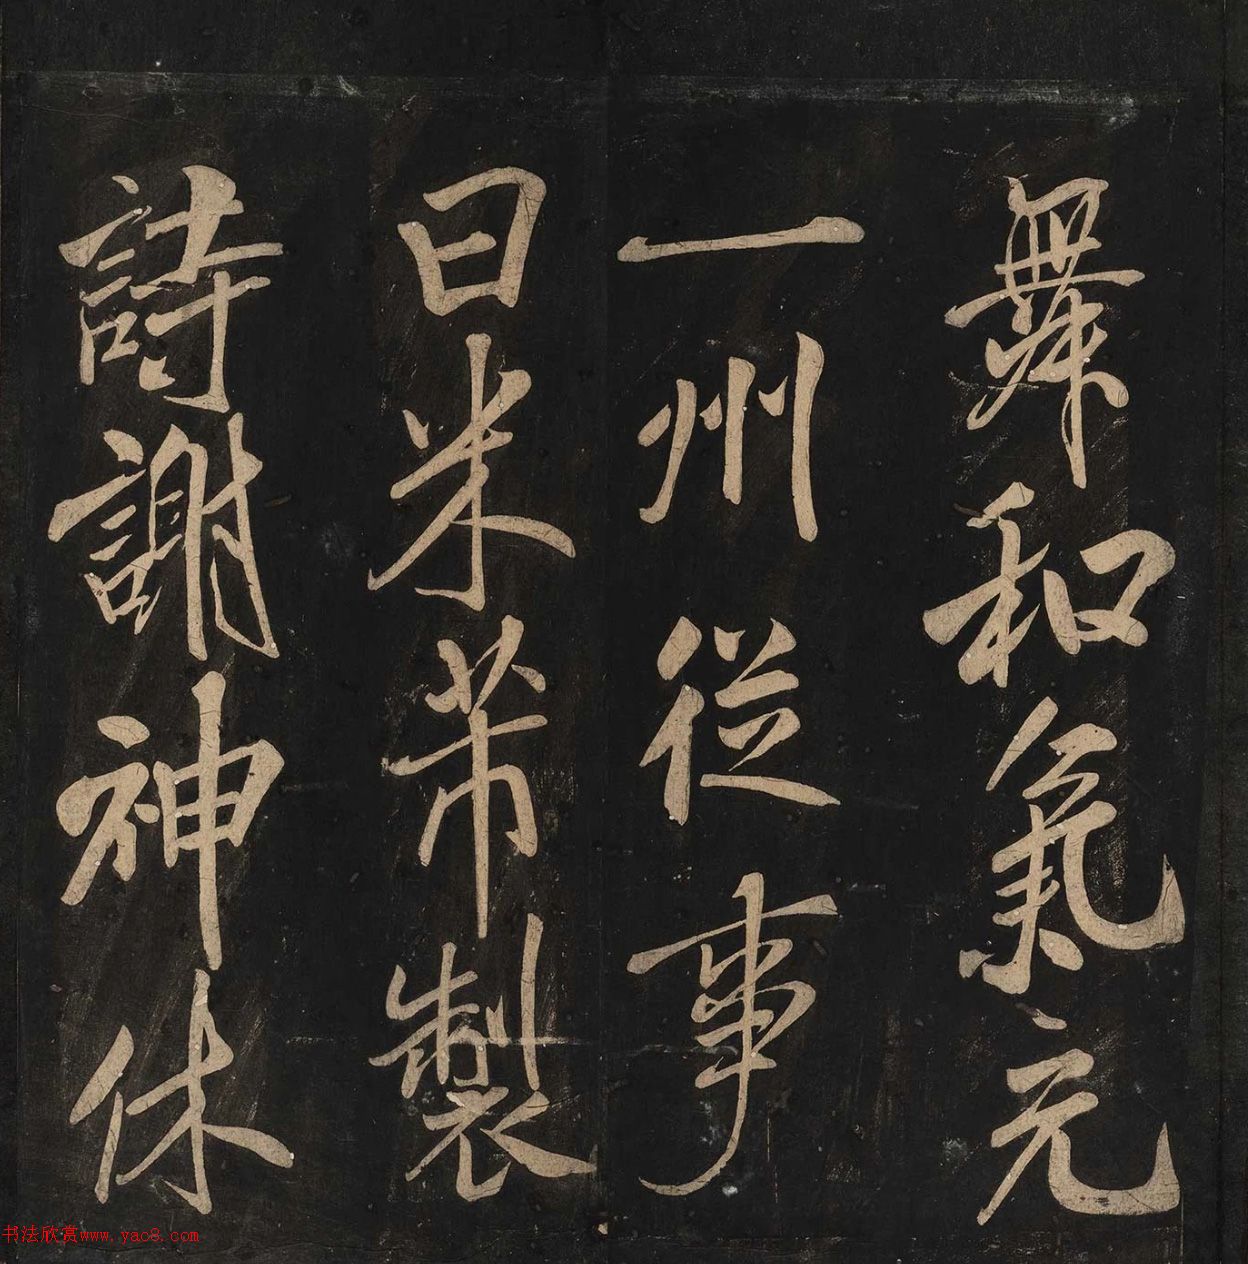 舞和氣元
一州從事
曰米芾製
詩謝神休
书法欣赏www.yac8.com